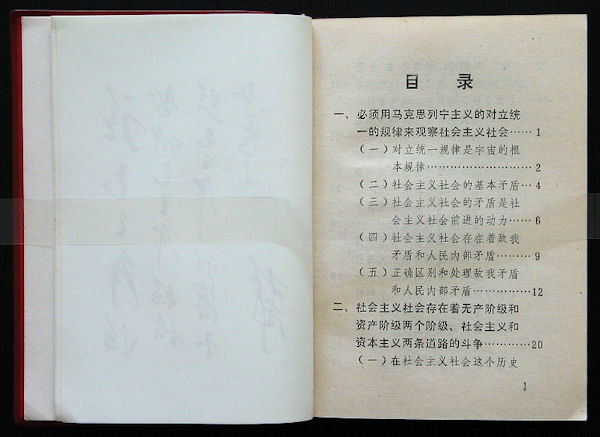 目录
一、必须用马克思列宁主义的对立统
一的规律来观察社会主义社会……1
(一)对立统一规律是宇宙的根
本规律…………………………2
(二)社会主义社会的基本矛盾…4
(三)社会主义社会的矛盾是社
会主义社会前进的动力……6
(四)社会主义社会存在着敌我
矛盾和人民内部矛盾………9
(五)正确区别和处理敌我矛盾
和人民内部矛盾……………12
二、社会主义社会存在着无产阶级和
资产阶级两个阶级、社会主义和
资本主义两条道路的斗争…………20
(一)在社会主义社会这个历史
1